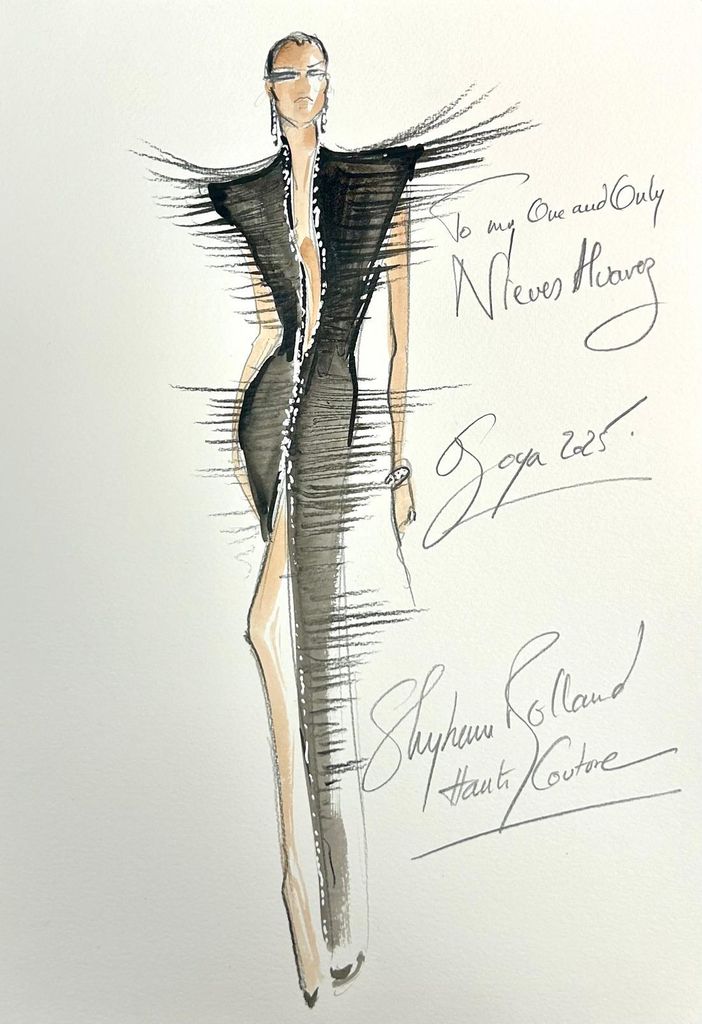 To my One and Only
Nieves Alvarez
Goya 2025.
Stéphane Rolland
Haute Couture